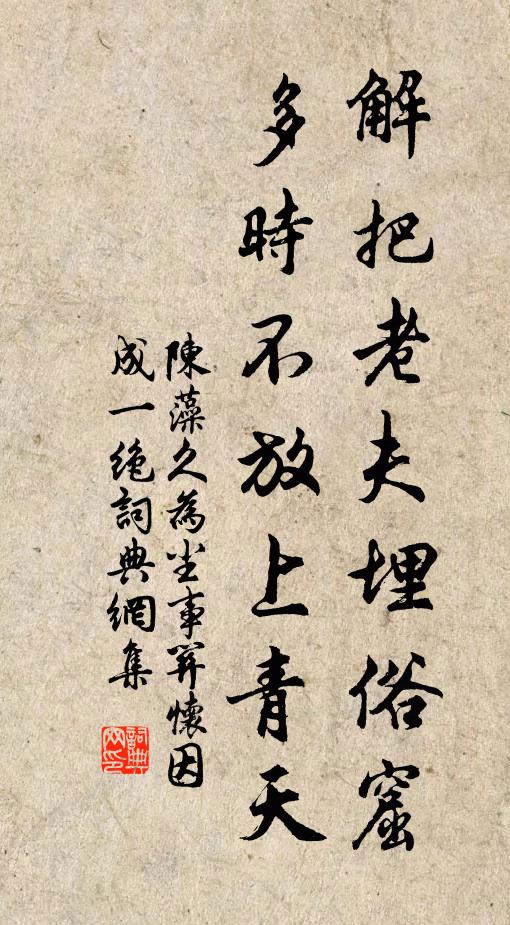 解把老夫埋俗窟
多時不放上青天
陳藻久為塵事罣懷因
成一絶詞典網集
詞典
网印